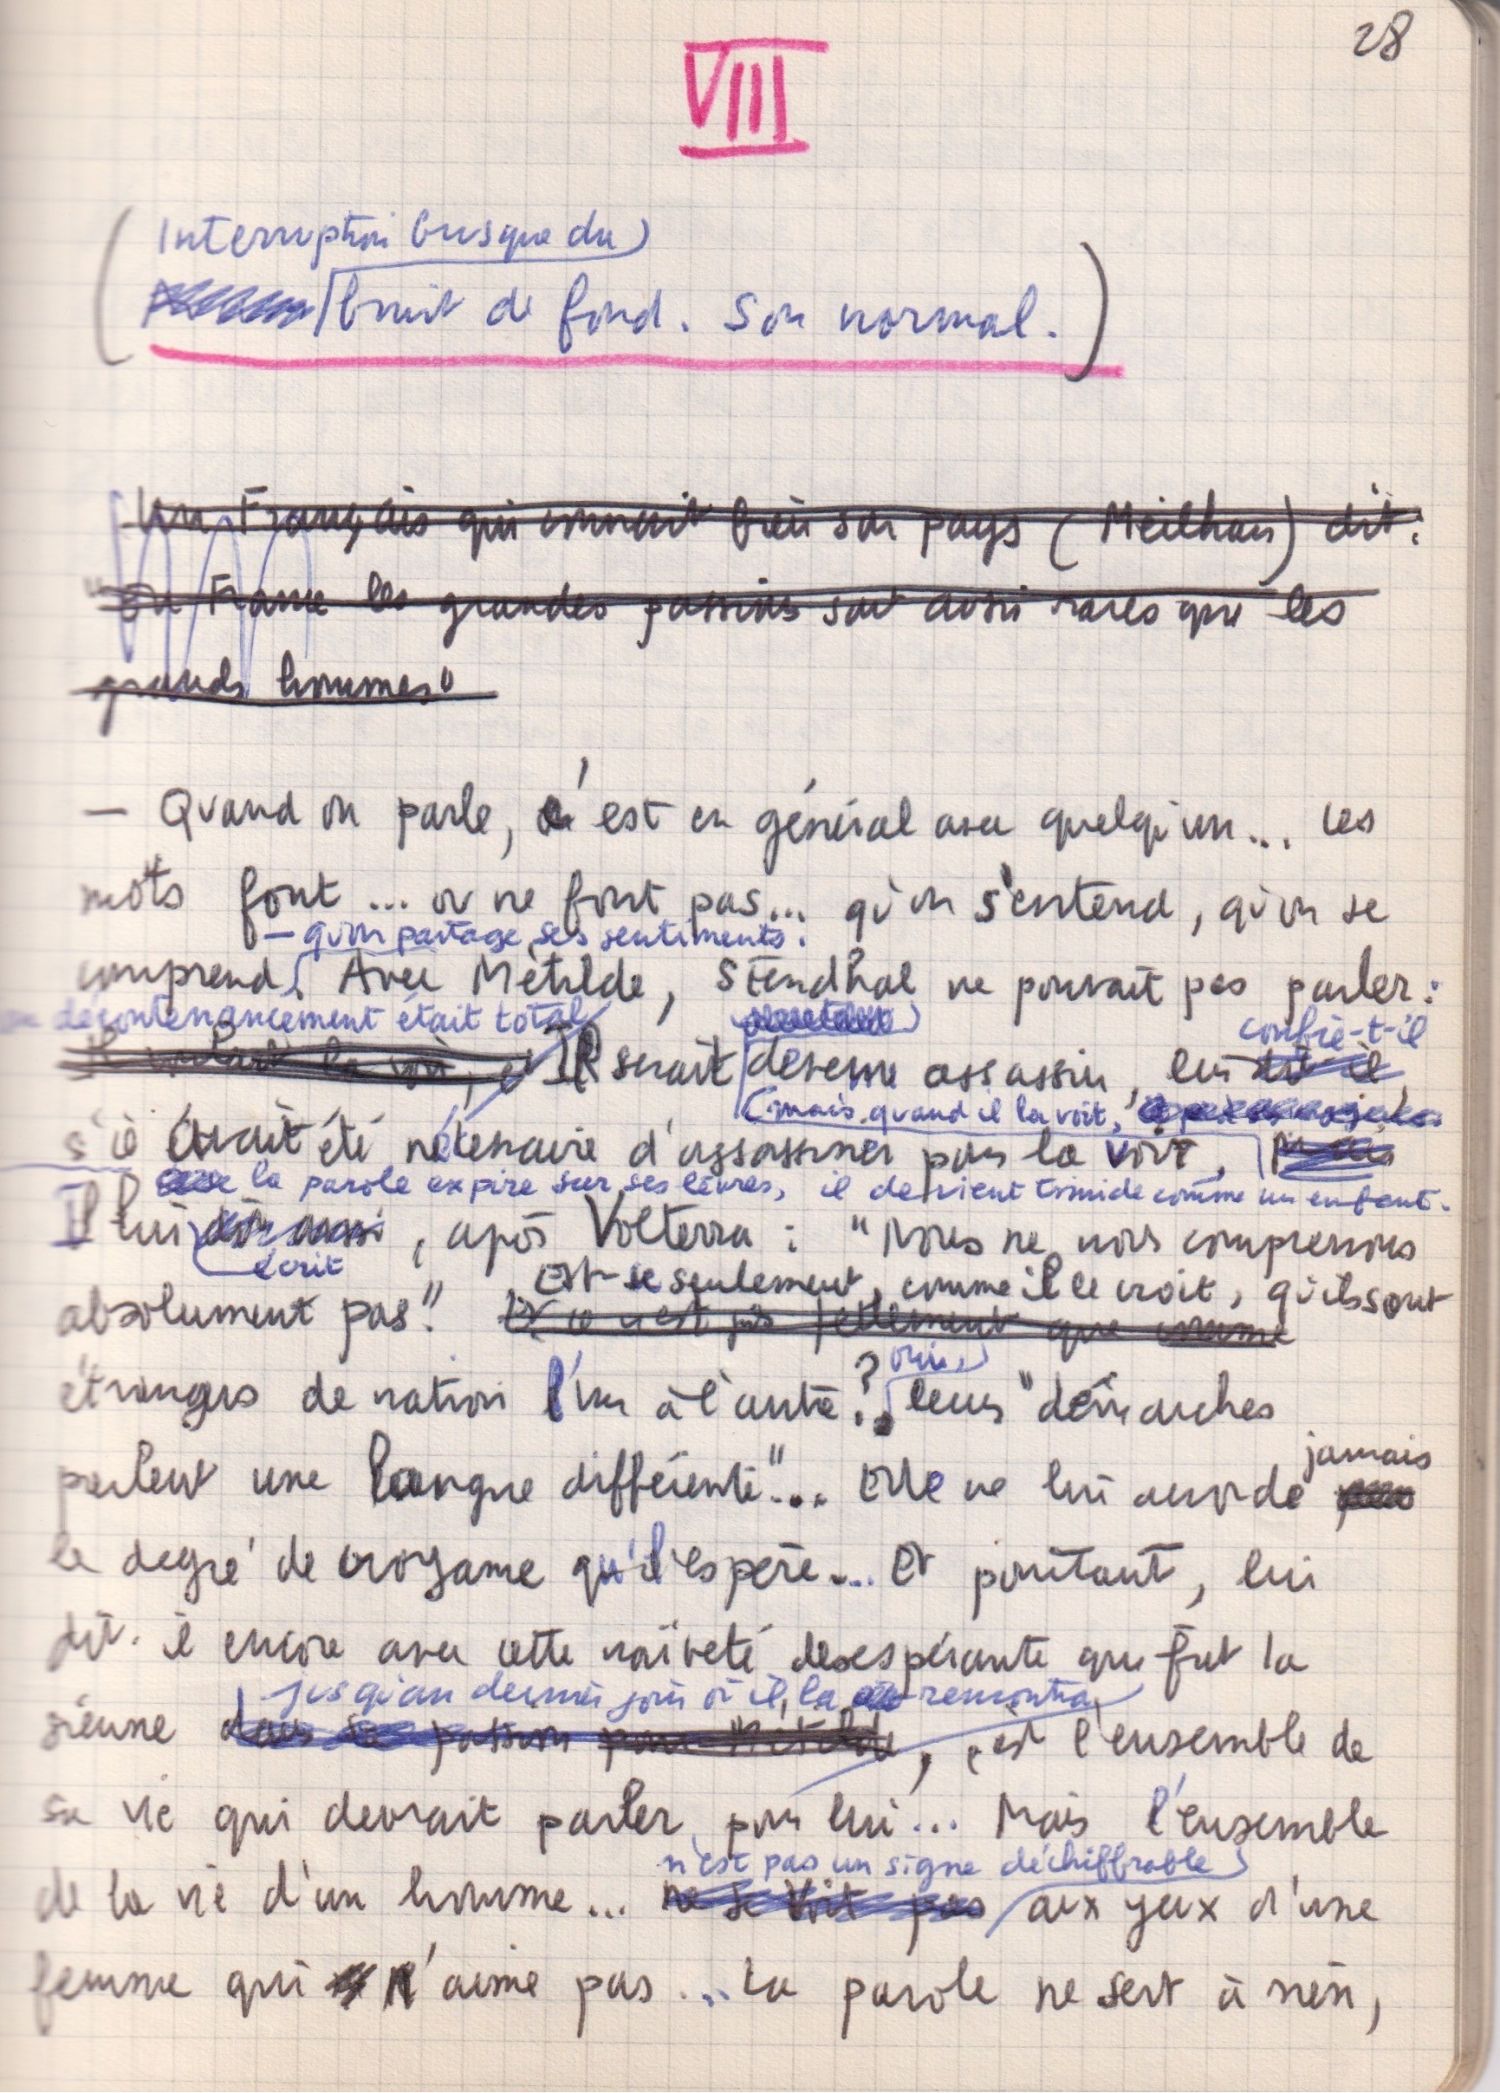 28
VIII
(Interruption brusque du
bruit de fond. Son normal.)
Un Français qui connait bien son pays (Meilhan) dit :
"En France les grandes passions sont aussi rares que les
grands hommes"
— Quand on parle, c'est en général avec quelqu'un... Les
mots font... ou ne font pas... qu'on s'entend, qu'on se
— qu'on partage ses sentiments.
comprend. Avec Métilde, Stendhal ne pouvait pas parler :
décontenancement était total
confie-t-il
Il serait devenu assassin, lui dit-il,
(mais quand il la voit,
s'il avait été nécessaire d'assassiner pour la voir,
la parole expire sur ses lèvres, il devient timide comme un enfant.
Il lui dit aussi, après Volterra : "Nous ne nous comprenons
écrit
Est-ce seulement, comme il le croit, qu'ils sont
absolument pas." Et ce n'est pas tellement que comme
oui,
étrangers de nation l'un à l'autre ? leurs "démarches
jamais
parlent une langue différente"... Elle ne lui accorde
le degré de croyance qu'il espère... Et pourtant, lui
dit-il encore avec cette naïveté désespérante que fut la
jusqu'au dernier jour où il la rencontra
sienne dans sa passion pour Métilde, c'est l'ensemble de
sa vie qui devrait parler pour lui... Mais l'ensemble
n'est pas un signe déchiffrable
de la vie d'un homme... ne se voit pas aux yeux d'une
femme qui n'aime pas... La parole ne sert à rien,